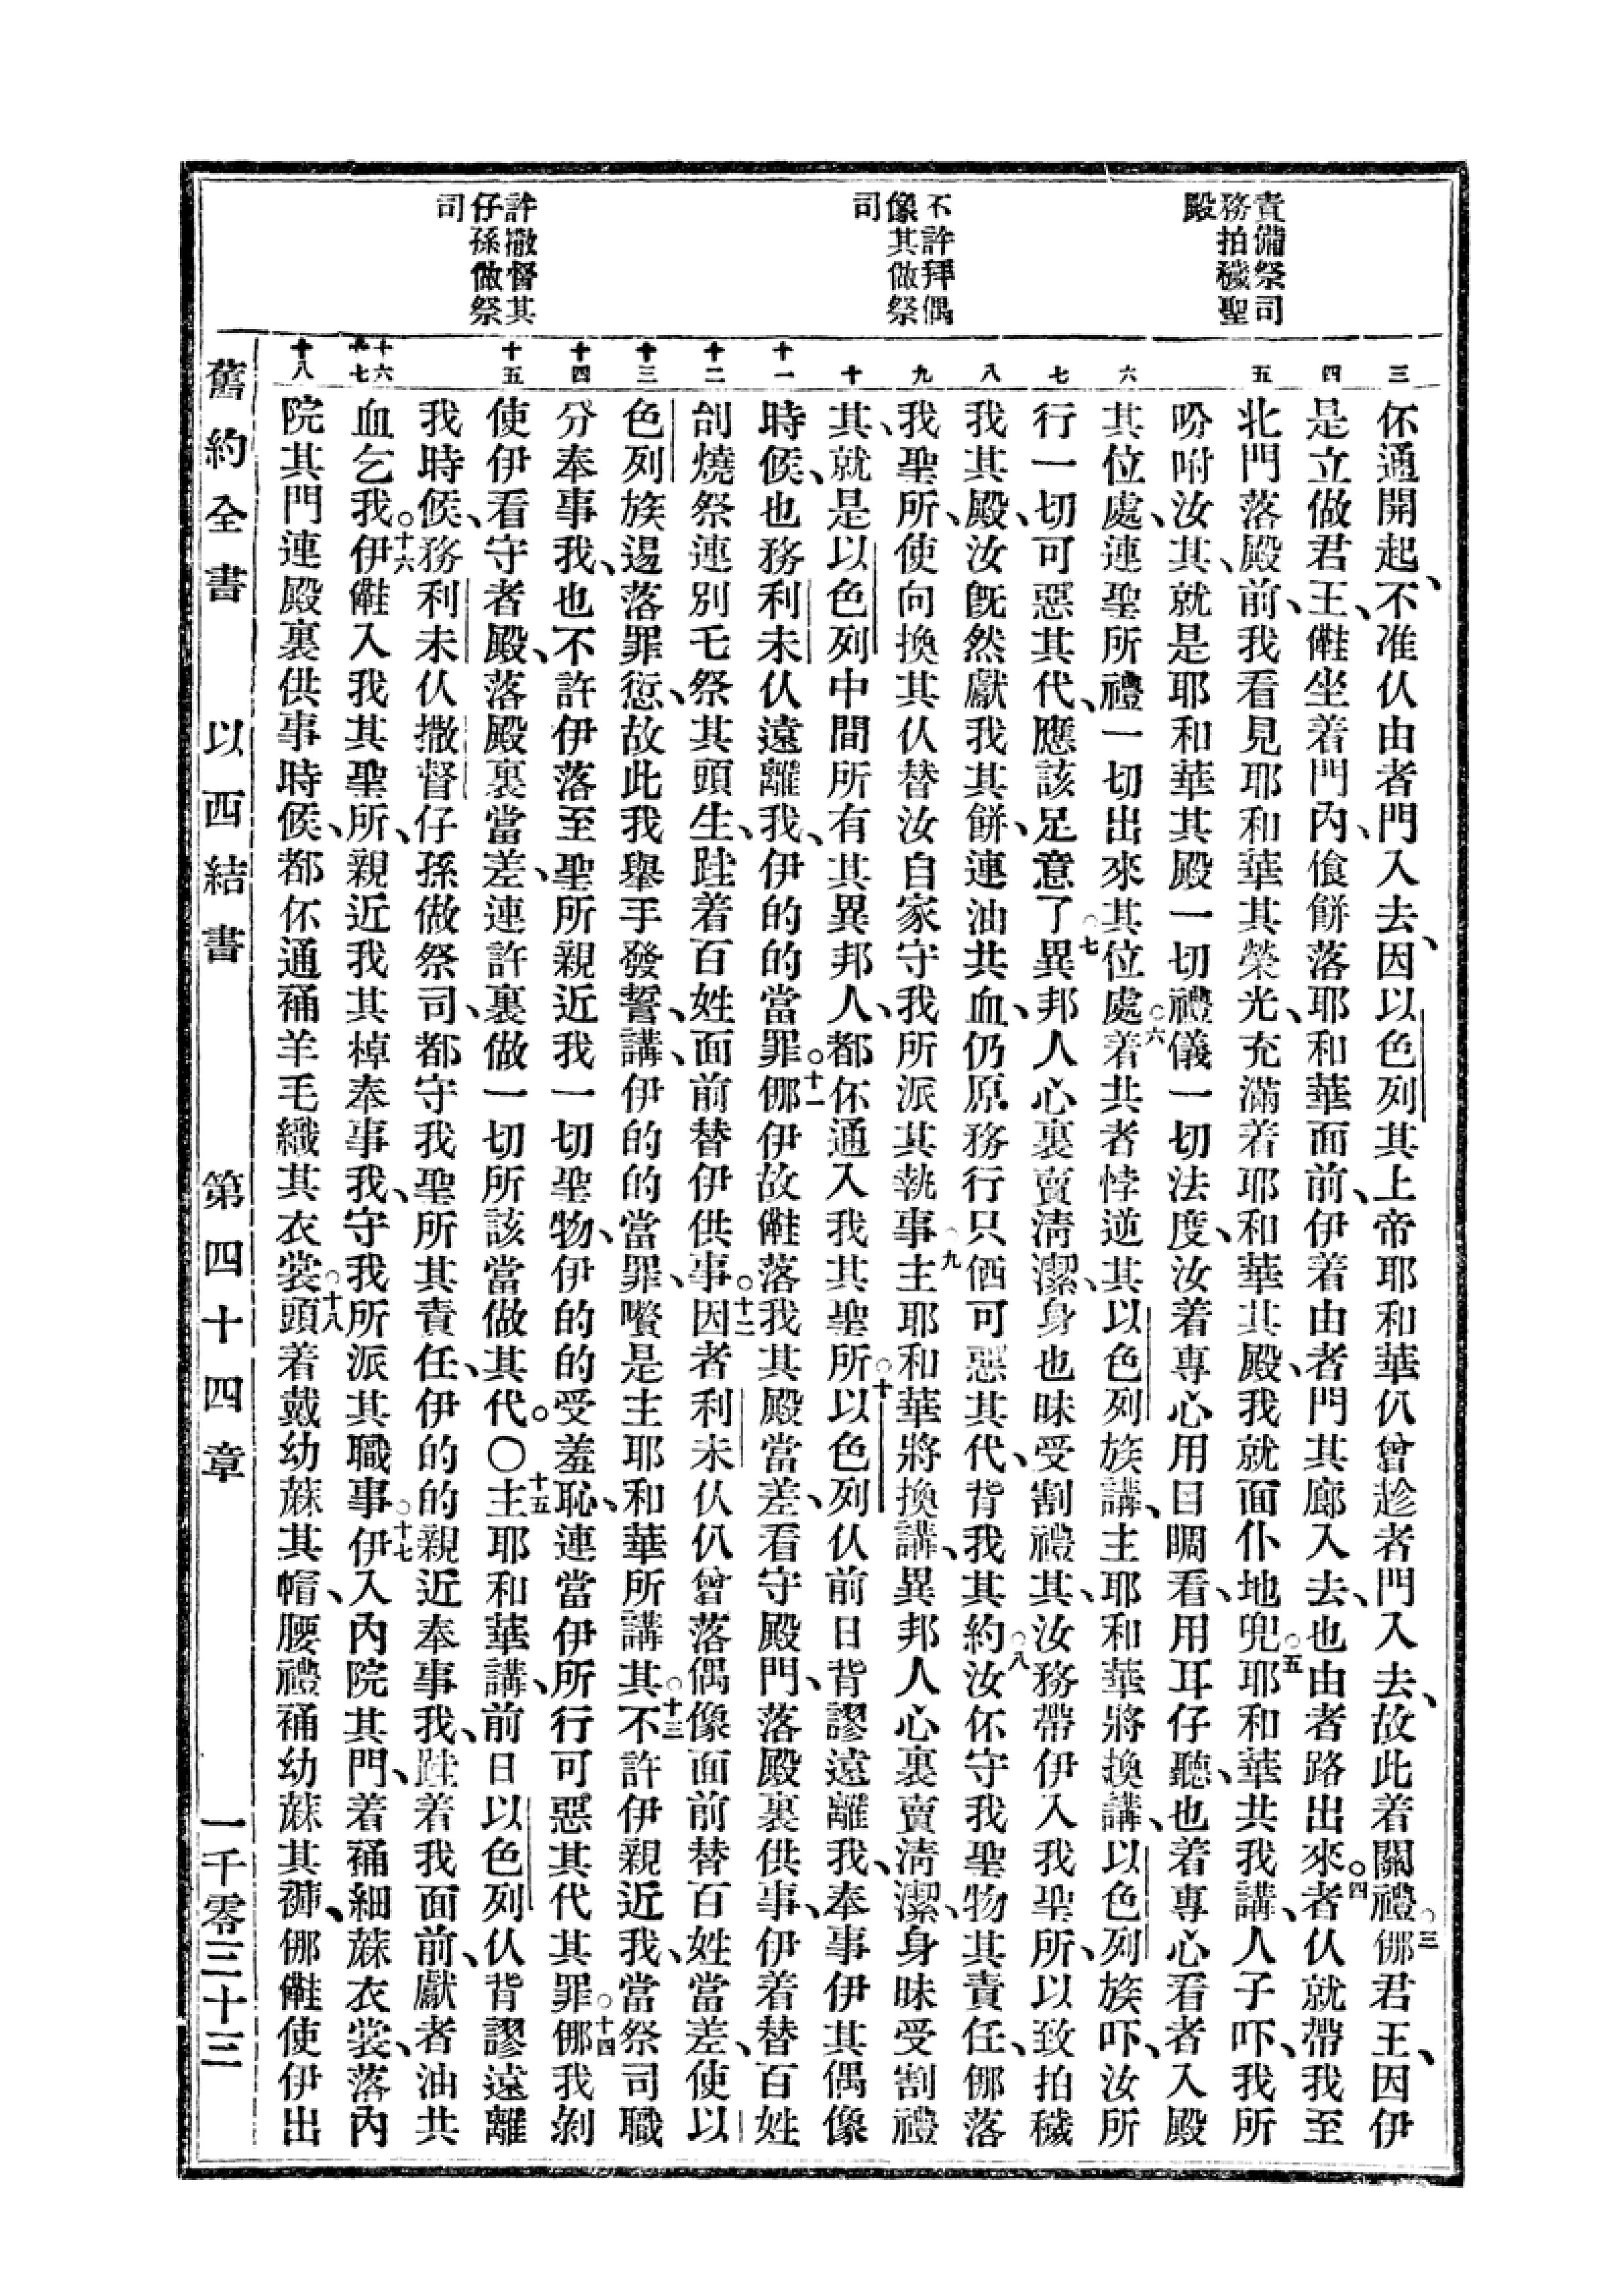 責備祭司
務拍穢聖
殿
不許拜偶
像其做祭
司
許撒督其
仔孫做祭
司
三
四
五
六
七
八
九
十
十一
十二
十三
十四
十五
十六
十七
十八
伓通開起、不准伩由者門入去、因以色列其上帝耶和華仈曾趁者門入去、故此着關禮○三倻君王、因伊
是立做君王、𣍐坐着門內、飡餅落耶和華面前、伊着由者門其廊入去、也由者路出來○四者伩就帶我至
北門落殿前、我看見耶和華其榮光、充滿着耶和華其殿、我就面仆地兜○五耶和華共我講、人子吓、我所
吩咐汝其、就是耶和華其殿一切禮儀一切法度、汝着專心用目睭看、用耳仔聽、也着專心看者入殿
其位處、連聖所禮一切出來其位處○六着共者悖逆其以色列族講、主耶和華將換講、以色列族吓、汝所
行一切可惡其代、應該足意了○七異邦人心裏賣淸潔、身也昧受割禮其、汝務帶伊入我聖所、以致拍穢
我其殿、汝旣然獻我其餅、連油共血、仍原務行只𠱃可惡其代、背我其約○八汝伓守我聖物其責任、倻落
我聖所、使向換其伩替汝自家守我所派其執事○九主耶和華將換講、異邦人心裏賣淸潔、身昧受割禮
其、就是以色列中間所有其異邦人、都伓通入我其聖所○十以色列伩前日背謬遠離我、奉事伊其偶像
時候、也務利未伩遠離我、伊的的當罪○十一倻伊故𣍐落我其殿當差、看守殿門、落殿裏供事、伊着替百姓
刣燒祭連別乇祭其頭生、跬着百姓面前替伊供事○十二因者利未伩仈曾落偶像面前替百姓當差、使以
色列族逿落罪愆、故此我舉手發誓、講、伊的的當罪、嚽是主耶和華所講其○十三不許伊親近我、當祭司職
分奉事我、也不許伊落至聖所親近我一切聖物、伊的的受羞恥、連當伊所行可惡其代其罪○十四倻我剝
使伊看守者殿、落殿裏當差、連許裏做一切所該當做其代。〇十五主耶和華講、前日以色列伩背謬遠離
我時候、務利未伩撒督仔孫做祭司、都守我聖所其責任、伊的的親近奉事我、跬着我面前、獻者油共
血乞我○十六伊𣍐入我其聖所、親近我其棹奉事我、守我所派其職事○十七伊入內院其門、着䘄細蔴衣裳、落內
院其門連殿裏供事時候、都伓通䘄羊毛織其衣裳○十八頭着戴幼蔴其帽、腰禮䘄幼蔴其褲、倻𣍐使伊出
舊約全書　以西結書　第四十四章　一千零三十三